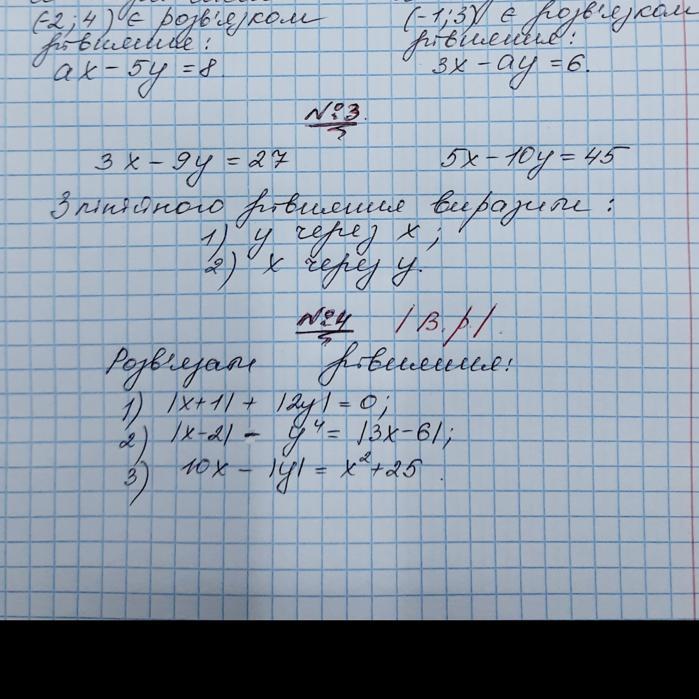 (-2; 4) є розв'язком
рівняння:
ax - 5y = 8.
(-1; 3) є розв'язком
рівняння:
3x - ay = 6.
№3.
3x - 9y = 27
5x - 10y = 45
З лінійного рівняння виразити:
1) y через x;
2) x через y.
№4 /В.р./
Розв'язати рівняння:
1) |x+1| + |2y| = 0;
2) |x-2| - y⁴ = |3x-6|;
3) 10x - |y| = x² + 25.